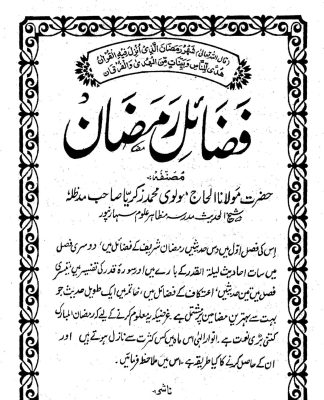 (قال الله تعالیٰ) شَهْرُ رَمَضَانَ الَّذِیْ اُنْزِلَ فِیْهِ الْقُرْاٰنُ
هُدًی لِّلنَّاسِ وَبَیِّنٰتٍ مِّنَ الْهُدٰی وَالْفُرْقَانِ
فضائلِ رمضان
مصنفہ
حضرت مولانا الحاج مولوی محمد زکریا صاحب مدظلہٗ
شیخ الحدیث مدرسہ مظاہر علوم سہارنپور
اس کی فصل اوّل میں دس حدیثیں رمضان شریف کے فضائل میں، دوسری فصل
میں سات احادیث لیلۃ القدر کے بارے میں اور سورہ قدر کی تفسیر میں، تیسری
فصل میں تین حدیثیں اعتکاف کے فضائل میں، خاتمہ میں ایک طویل حدیث جو
بہت سے بہترین مضامین پر مشتمل ہے، غرض یہ معلوم کرنے کے لیے کہ رمضان المبارک
کتنی بڑی نعمت ہے، انوارِ الٰہی اس ماہ میں کس کثرت سے نازل ہوتے ہیں اور
ان کے حاصل کرنے کا کیا طریقہ ہے، اس میں ملاحظہ فرمائیں۔
ناشر